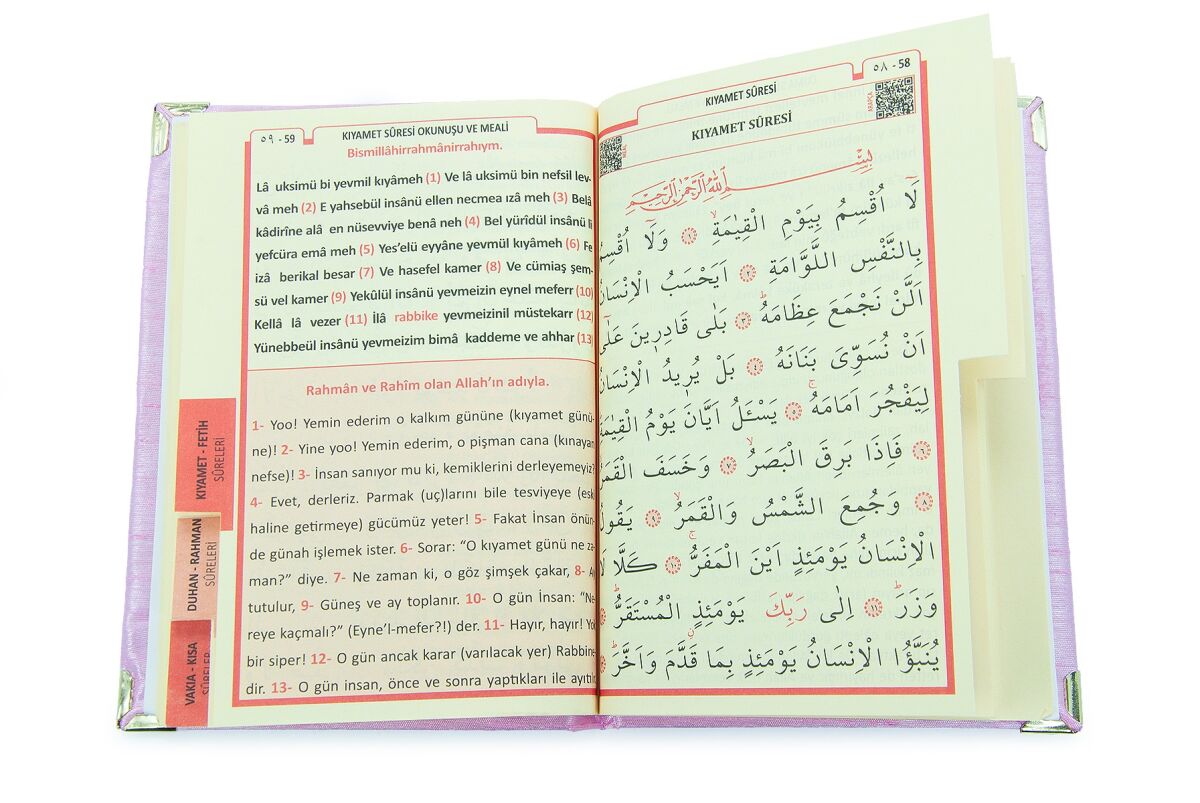 ٥٨ - 58
KIYAMET SÛRESİ
KIYAMET SÛRESİ
ARAPÇA
MEAL
بِسْمِ اللّٰهِ الرَّحْمٰنِ الرَّحِيمِ
لَٓا اُقْسِمُ بِيَوْمِ الْقِيٰمَةِۙ ﴿١﴾ وَلَٓا اُقْسِمُ
بِالنَّفْسِ اللَّوَّامَةِ ﴿٢﴾ اَيَحْسَبُ الْاِنْسَانُ
اَلَّنْ نَجْمَعَ عِظَامَهُۜ ﴿٣﴾ بَلٰى قَادِرِينَ عَلٰٓى
اَنْ نُسَوِّىَ بَنَانَهُ ﴿٤﴾ بَلْ يُرِيدُ الْاِنْسَانُ
لِيَفْجُرَ اَمَامَهُۚ ﴿٥﴾ يَسْـَٔلُ اَيَّانَ يَوْمُ الْقِيٰمَةِ
﴿٦﴾ فَاِذَا بَرِقَ الْبَصَرُۙ ﴿٧﴾ وَخَسَفَ الْقَمَرُ
﴿٨﴾ وَجُمِعَ الشَّمْسُ وَالْقَمَرُۙ ﴿٩﴾ يَقُولُ
الْاِنْسَانُ يَوْمَئِذٍ اَيْنَ الْمَفَرُّۚ ﴿١٠﴾ كَلَّا لَا
وَزَرَۜ ﴿١١﴾ اِلٰى رَبِّكَ يَوْمَئِذٍ الْمُسْتَقَرُّۜ
يُنَبَّؤُا الْاِنْسَانُ يَوْمَئِذٍ بِمَا قَدَّمَ وَاَخَّرَۜ
٥٩ - 59
KIYAMET SÛRESİ OKUNUŞU VE MEALİ
Bismillâhirrahmânirrahıym.
Lâ uksimü bi yevmil kıyâmeh (1) Ve lâ uksimü bin nefsil lev-
vâ meh (2) E yahsebül insânü ellen necmea ızâ meh (3) Belâ
kâdirîne alâ en nüsevviye benâ neh (4) Bel yürîdül insânü li
yefcüra emâ meh (5) Yes’elü eyyâne yevmül kıyâmeh (6) Fe
izâ berikal besar (7) Ve hasefel kamer (8) Ve cümiaş şem-
sü vel kamer (9) Yekûlül insânü yevmeizin eynel meferr (10)
Kellâ lâ vezer (11) İlâ rabbike yevmeizinil müstekarr (12)
Yünebbeül insânü yevmeizim bimâ kaddeme ve ahhar (13)
Rahmân ve Rahîm olan Allah’ın adıyla.
1- Yoo! Yemin ederim o kalkım gününe (kıyamet günü-
ne)! 2- Yine yoo! Yemin ederim, o pişman cana (kınayan
nefse)! 3- İnsan sanıyor mu ki, kemiklerini derleyemeyiz?
4- Evet, derleriz. Parmak (uç)larını bile tesviyeye (eski
haline getirmeye) gücümüz yeter! 5- Fakat İnsan önün-
de günah işlemek ister. 6- Sorar: “O kıyamet günü ne za-
man?” diye. 7- Ne zaman ki, o göz şimşek çakar, 8- Ay
tutulur, 9- Güneş ve ay toplanır. 10- O gün İnsan: “Ne-
reye kaçmalı?” (Eyne’l-mefer?!) der. 11- Hayır, hayır! Yok
bir siper! 12- O gün ancak karar (varılacak yer) Rabbine-
dir. 13- O gün insan, önce ve sonra yaptıkları ile ayıtılır
KIYAMET - FETİH
SÛRELERİ
DUHAN - RAHMAN
SÛRELERİ
VAKIA - KISA
SÛRELER